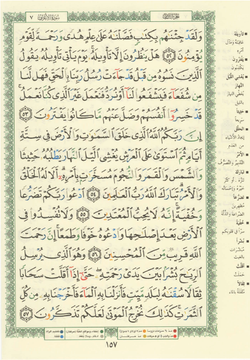 الجزء الثامن سورة الأعراف ٧
وَلَقَدْ جِئْنَٰهُم بِكِتَٰبٍ فَصَّلْنَٰهُ عَلَىٰ عِلْمٍ هُدًى وَرَحْمَةً لِّقَوْمٍ
يُؤْمِنُونَ ٥٢ هَلْ يَنظُرُونَ إِلَّا تَأْوِيلَهُۥ يَوْمَ يَأْتِي تَأْوِيلُهُۥ يَقُولُ
ٱلَّذِينَ نَسُوهُ مِن قَبْلُ قَدْ جَآءَتْ رُسُلُ رَبِّنَا بِٱلْحَقِّ فَهَل لَّنَا
مِن شُفَعَآءَ فَيَشْفَعُوا۟ لَنَآ أَوْ نُرَدُّ فَنَعْمَلَ غَيْرَ ٱلَّذِي كُنَّا نَعْمَلُ
قَدْ خَسِرُوٓا۟ أَنفُسَهُمْ وَضَلَّ عَنْهُم مَّا كَانُوا۟ يَفْتَرُونَ ٥٣
إِنَّ رَبَّكُمُ ٱللَّهُ ٱلَّذِي خَلَقَ ٱلسَّمَٰوَٰتِ وَٱلْأَرْضَ فِي سِتَّةِ
أَيَّامٍ ثُمَّ ٱسْتَوَىٰ عَلَى ٱلْعَرْشِ يُغْشِي ٱلَّيْلَ ٱلنَّهَارَ يَطْلُبُهُۥ حَثِيثًا
وَٱلشَّمْسَ وَٱلْقَمَرَ وَٱلنُّجُومَ مُسَخَّرَٰتٍۭ بِأَمْرِهِۦٓ أَلَا لَهُ ٱلْخَلْقُ
وَٱلْأَمْرُ تَبَارَكَ ٱللَّهُ رَبُّ ٱلْعَٰلَمِينَ ٥٤ ٱدْعُوا۟ رَبَّكُمْ تَضَرُّعًا
وَخُفْيَةً إِنَّهُۥ لَا يُحِبُّ ٱلْمُعْتَدِينَ ٥٥ وَلَا تُفْسِدُوا۟ فِي
ٱلْأَرْضِ بَعْدَ إِصْلَٰحِهَا وَٱدْعُوهُ خَوْفًا وَطَمَعًا إِنَّ رَحْمَتَ
ٱللَّهِ قَرِيبٌ مِّنَ ٱلْمُحْسِنِينَ ٥٦ وَهُوَ ٱلَّذِي يُرْسِلُ
ٱلرِّيَٰحَ بُشْرًۢا بَيْنَ يَدَيْ رَحْمَتِهِۦ حَتَّىٰٓ إِذَآ أَقَلَّتْ سَحَابًا
ثِقَالًا سُقْنَٰهُ لِبَلَدٍ مَّيِّتٍ فَأَنزَلْنَا بِهِ ٱلْمَآءَ فَأَخْرَجْنَا بِهِۦ مِن كُلِّ
ٱلثَّمَرَٰتِ كَذَٰلِكَ نُخْرِجُ ٱلْمَوْتَىٰ لَعَلَّكُمْ تَذَكَّرُونَ ٥٧
١٥٧